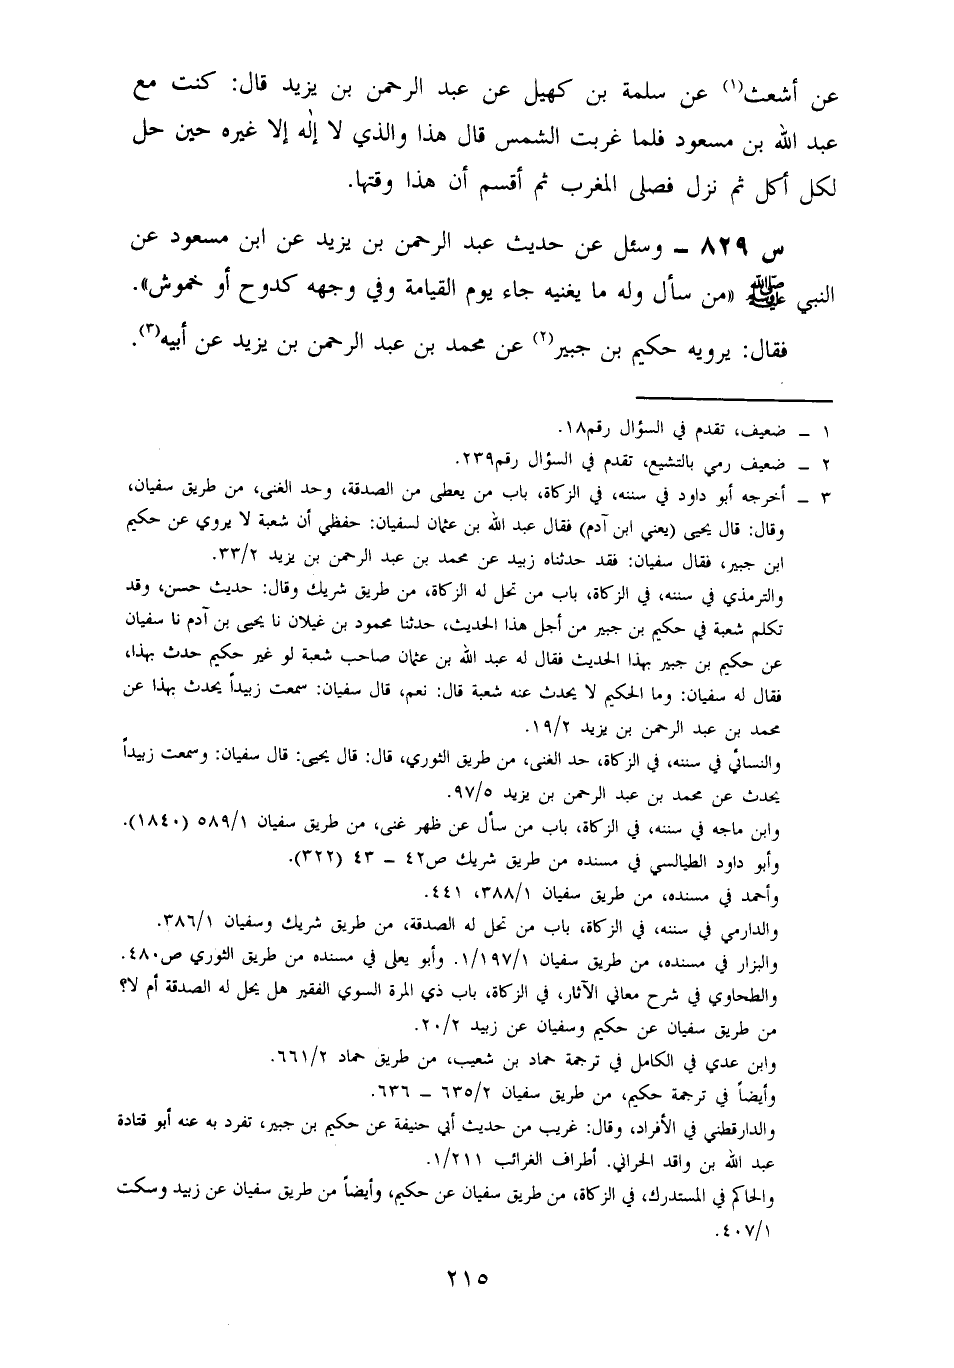 عن أشعث(١) عن سلمة بن كهيل عن عبد الرحمن بن يزيد قال: كنت مع
عبد الله بن مسعود فلما غربت الشمس قال هذا والذي لا إله إلا غيره حين حل
لكل أكل ثم نزل فصلى المغرب ثم أقسم أن هذا وقتها.
س ٨٢٩ – وسئل عن حديث عبد الرحمن بن يزيد عن ابن مسعود عن
النبي ﷺ «من سأل وله ما يغنيه جاء يوم القيامة وفي وجهه كدوح أو خموش».
فقال: يرويه حكيم بن جبير(٢) عن محمد بن عبد الرحمن بن يزيد عن أبيه(٣).
١ – ضعيف، تقدم في السؤال رقم١٨.
٢ – ضعيف رمي بالتشيع، تقدم في السؤال رقم٢٣٩.
٣ – أخرجه أبو داود في سننه، في الزكاة، باب من يعطى من الصدقة، وحد الغنى، من طريق سفيان،
وقال: قال يحيى (يعني ابن آدم) فقال عبد الله بن عثمان لسفيان: حفظي أن شعبة لا يروي عن حكيم
ابن جبير، فقال سفيان: فقد حدثناه زبيد عن محمد بن عبد الرحمن بن يزيد ٣٣/٢.
والترمذي في سننه، في الزكاة، باب من تحل له الزكاة، من طريق شريك وقال: حديث حسن، وقد
تكلم شعبة في حكيم بن جبير من أجل هذا الحديث، حدثنا محمود بن غيلان نا يحيى بن آدم نا سفيان
عن حكيم بن جبير بهذا الحديث فقال له عبد الله بن عثمان صاحب شعبة لو غير حكيم حدث بهذا،
فقال له سفيان: وما الحكيم لا يحدث عنه شعبة قال: نعم، قال سفيان: سمعت زبيداً يحدث بهذا عن
محمد بن عبد الرحمن بن يزيد ١٩/٢.
والنسائي في سننه، في الزكاة، حد الغنى، من طريق الثوري، قال: قال يحيى: قال سفيان: وسمعت زبيداً
يحدث عن محمد بن عبد الرحمن بن يزيد ٩٧/٥.
وابن ماجه في سننه، في الزكاة، باب من سأل عن ظهر غنى، من طريق سفيان ٥٨٩/١ (١٨٤٠).
وأبو داود الطيالسي في مسنده من طريق شريك ص٤٢ – ٤٣ (٣٢٢).
وأحمد في مسنده، من طريق سفيان ٣٨٨/١، ٤٤١.
والدارمي في سننه، في الزكاة، باب من تحل له الصدقة، من طريق شريك وسفيان ٣٨٦/١.
والبزار في مسنده، من طريق سفيان ١/١٩٧/١. وأبو يعلى في مسنده من طريق الثوري ص٤٨٠.
والطحاوي في شرح معاني الآثار، في الزكاة، باب ذي المرة السوي الفقير هل يحل له الصدقة أم لا؟
من طريق سفيان عن حكيم وسفيان عن زبيد ٢٠/٢.
وابن عدي في الكامل في ترجمة حماد بن شعيب، من طريق حماد ٦٦١/٢.
وأيضاً في ترجمة حكيم، من طريق سفيان ٦٣٥/٢ – ٦٣٦.
والدارقطني في الأفراد، وقال: غريب من حديث أبي حنيفة عن حكيم بن جبير، تفرد به عنه أبو قتادة
عبد الله بن واقد الحراني. أطراف الغرائب ١/٢١١.
والحاكم في المستدرك، في الزكاة، من طريق سفيان عن حكيم، وأيضاً من طريق سفيان عن زبيد وسكت
٤٠٧/١.
٢١٥